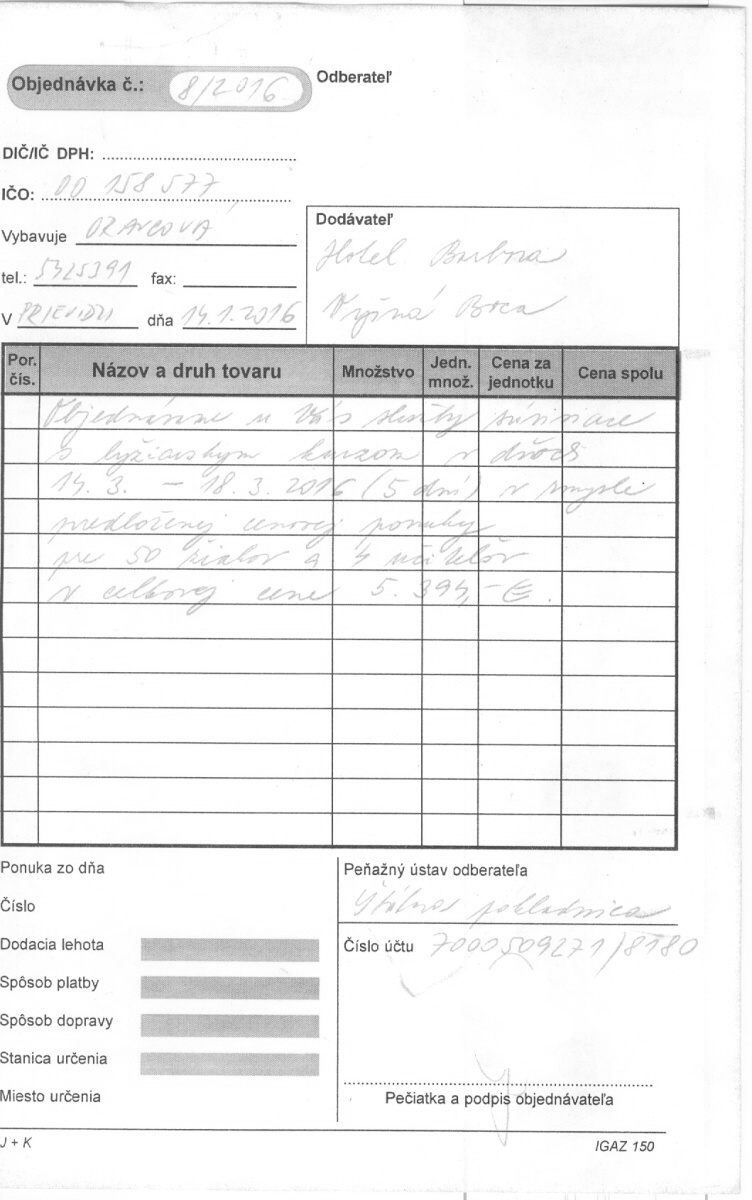 Objednávka č.: 8/2016
Odberateľ
DIČ/IČ DPH:
IČO: 00 158 577
Vybavuje ORAVCOVÁ
tel.: 5425391 fax:
V PRIEVIDZI dňa 14.1.2016
Dodávateľ
Hotel Barbora
Vyšná Boca
Por. čís. Názov a druh tovaru Množstvo Jedn. množ. Cena za jednotku Cena spolu
Objednávame u Vás služby súvisiace
s lyžiarskym kurzom v dňoch
14.3. – 18.3.2016 (5 dní) v zmysle
predloženej cenovej ponuky
pre 50 žiakov a 4 učiteľov
v celkovej cene 5.394,-€.
Ponuka zo dňa
Číslo
Dodacia lehota
Spôsob platby
Spôsob dopravy
Stanica určenia
Miesto určenia
Peňažný ústav odberateľa
Štátna pokladnica
Číslo účtu 7000509271/8180
Pečiatka a podpis objednávateľa
J + K
IGAZ 150